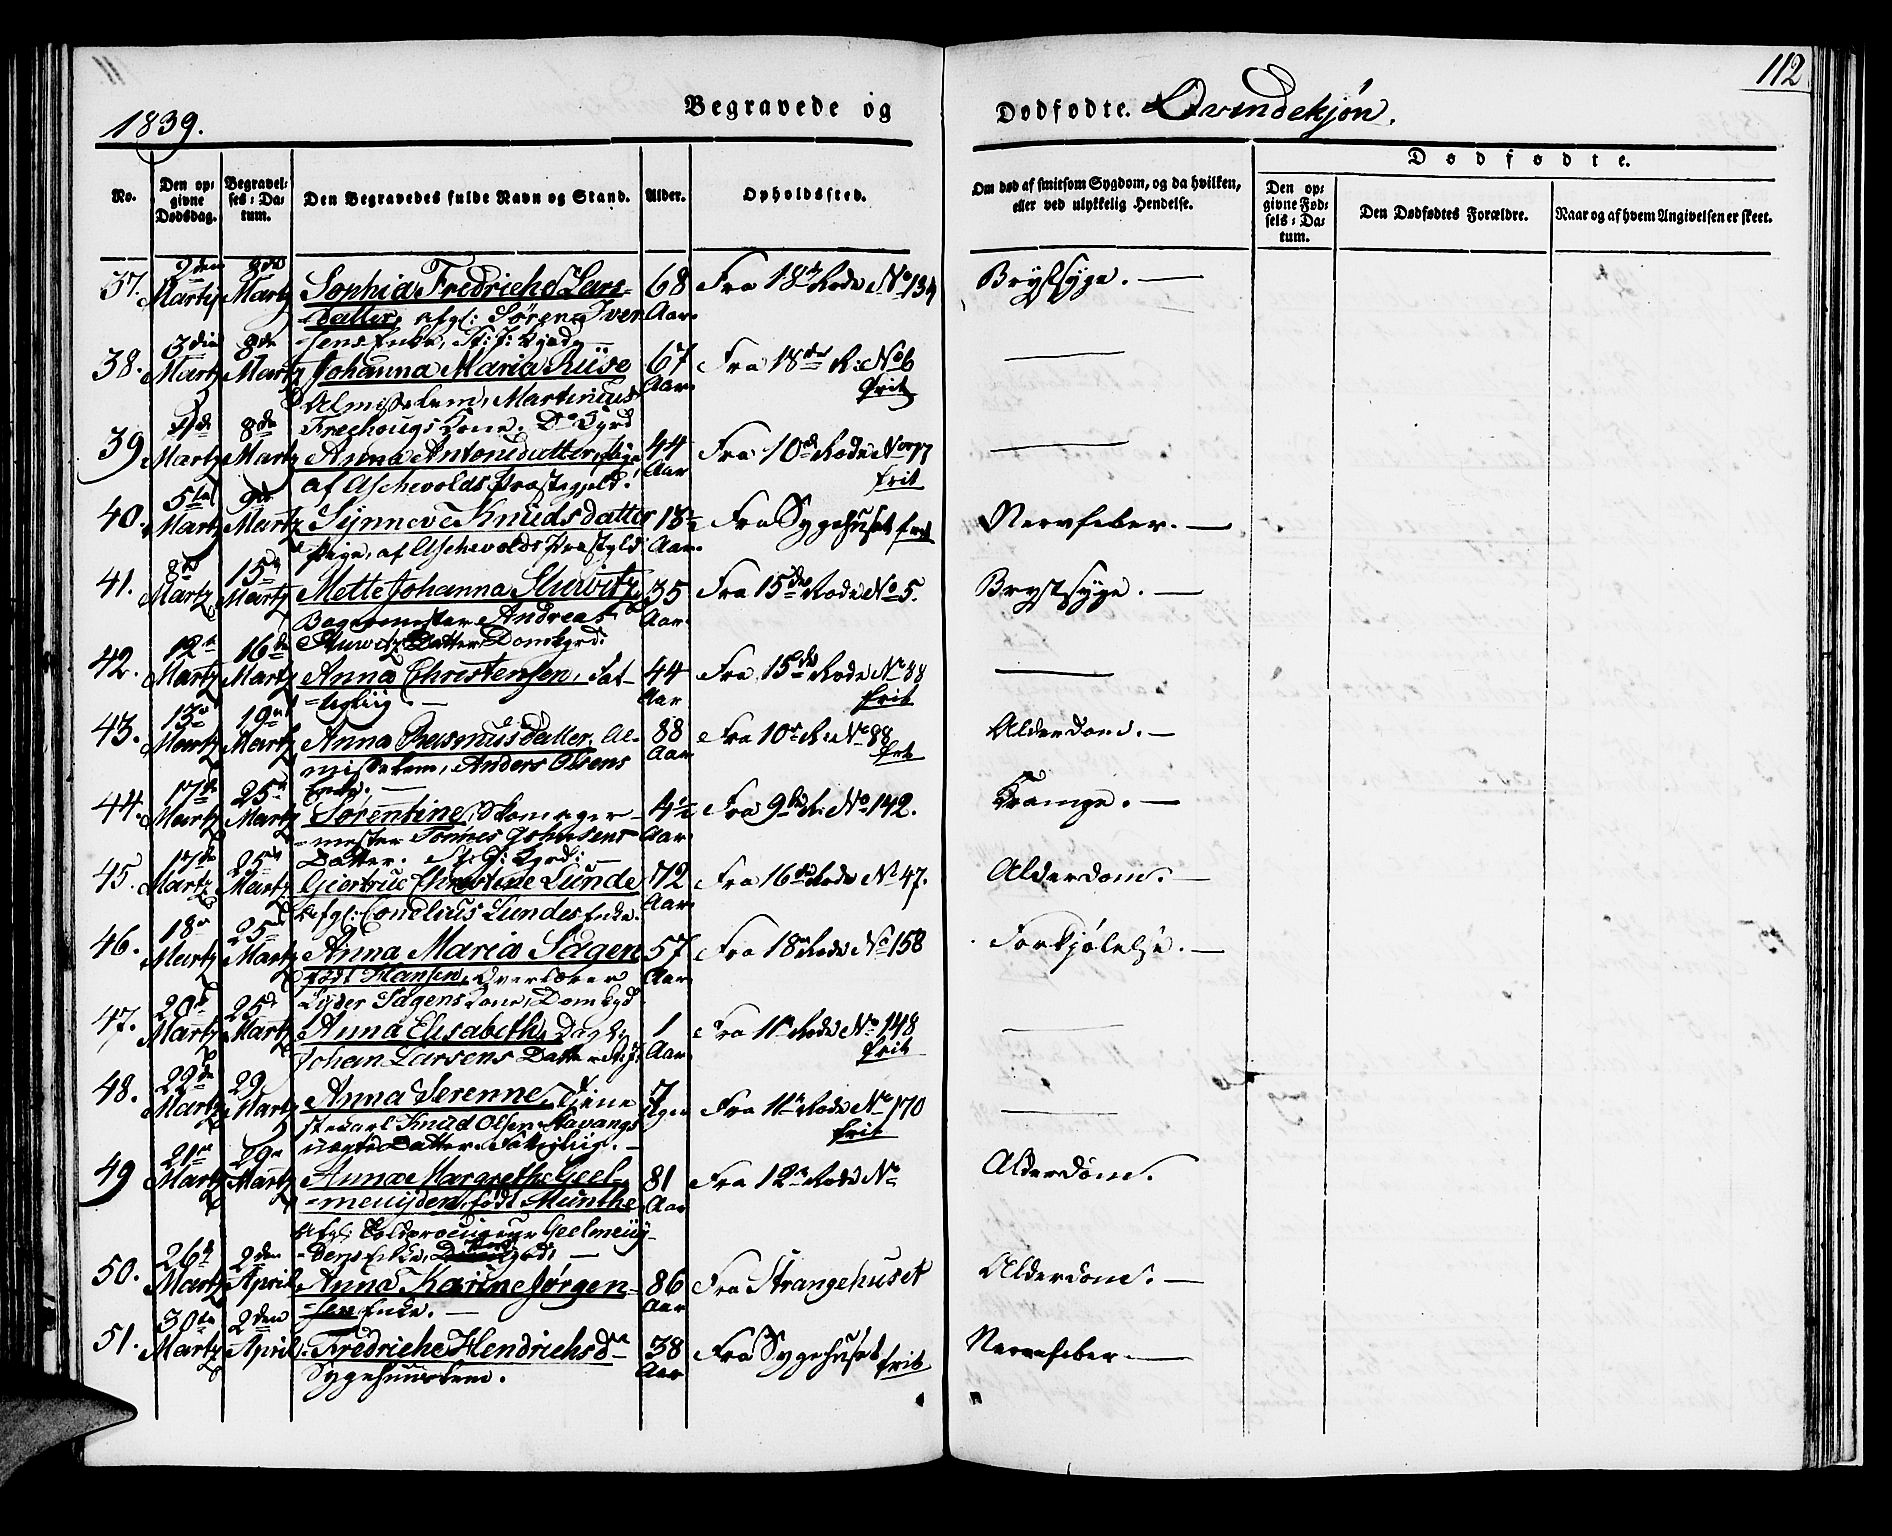 112
1839.
Begravede og Dødfødte. Qvindekjøn.
No.
Den opgivne Dødsdag.
Begravelses-Datum.
Den Begravedes fulde Navn og Stand.
Alder.
Opholdssted.
Om død af smitsom Sygdom, og da hvilken, eller ved ulykkelig Hendelse.
Dødfødte.
Den opgivne Fødsels-Datum.
Den Dødfødtes Forældre.
Naar og af hvem Angivelsen er skeet.
37. 2den Martz 8de Martz Sophia Fredriche Lars- 68 Aar Fra 18de Rode No 134 Brystsyge. —
datter, afgl: Søren Iver-
sens Enke,
38. 3die Martz 8de Martz Johanna Maria Riise 67 Aar Fra 18de R: No 6 frit —
Almisselem, Martinius
Kone. Do Kyrd
39 Martz 8de Martz Anna Antonsdatter, Pige 44 Aar Fra 10de Rode No 77 frit —
af Aschevolds Præstegjeld.
40. 5te Martz 9de Martz Synneve Knudsdatter 18½ Aar Fra Sygehuset frit Nervfeber. —
Pige, af Aschevolds Præstgjld
41. 8de Martz 15de Martz Mette Johanna Sturwitz 35 Aar Fra 15de Rode No 5. Brystsyge. —
Bagermester Andreas
Sturwitz Datter Domkyrd:
42. 12te Martz 16de Martz Anna Christensen, Fat- 44 Aar Fra 15de Rode No 88 frit —
tiglig. —
43. 13de Martz 19de Martz Anna Rasmusdatter, Al- 88 Aar Fra 10de R: No 88 frit Alderdom. —
misselem, Anders Olsens
Enke. —
44. 17de Martz 25de Martz Sørentine, Skomager- 4½ Aar Fra 9de R: No 142. Krampe. —
mester Tønnes Johnsens
Datter. Kyrd: —
45. 17de Martz 25de Martz Giertrue Christine Lunde 72 Aar Fra 16de Rode No 47. Alderdom. —
afgl: Conelius Lundes Enke.
46. 18de Martz 25de Martz Anna Maria Sagen 57 Aar Fra 18de Rode No 158 Forkjølelse. —
født Hansen, Overlærer
Lyder Sagens Kone, Domkyd
47. 20de Martz 25de Martz Anna Elisabeth, Dagk: 1 Aar Fra 11te Rode No 148 frit —
Johan Larsens Datter
48. 22de Martz 29 Martz Anna Serenne, Tjene 7 Fra 11te Rode No 170 frit —
stekarl Knud Olsen Stavangs
Datter. Fattiglig. —
49 21de Martz 29de Martz Anna Margrethe Geel- 81 Aar Fra 12te Rode No Alderdom.
meuyden, født Munthe
afgl: Geelmeuy-
dens Enke,
50. 26de Martz 2den April Anna Karine Jørgen- 86 Aar Fra Strangehuset Alderdom. —
sen Enke. —
51. 30te Martz 2den April Fredriche Hendrichsd 38 Aar Fra Sygehuset frit Nervefeber —
Sygehuuslem.